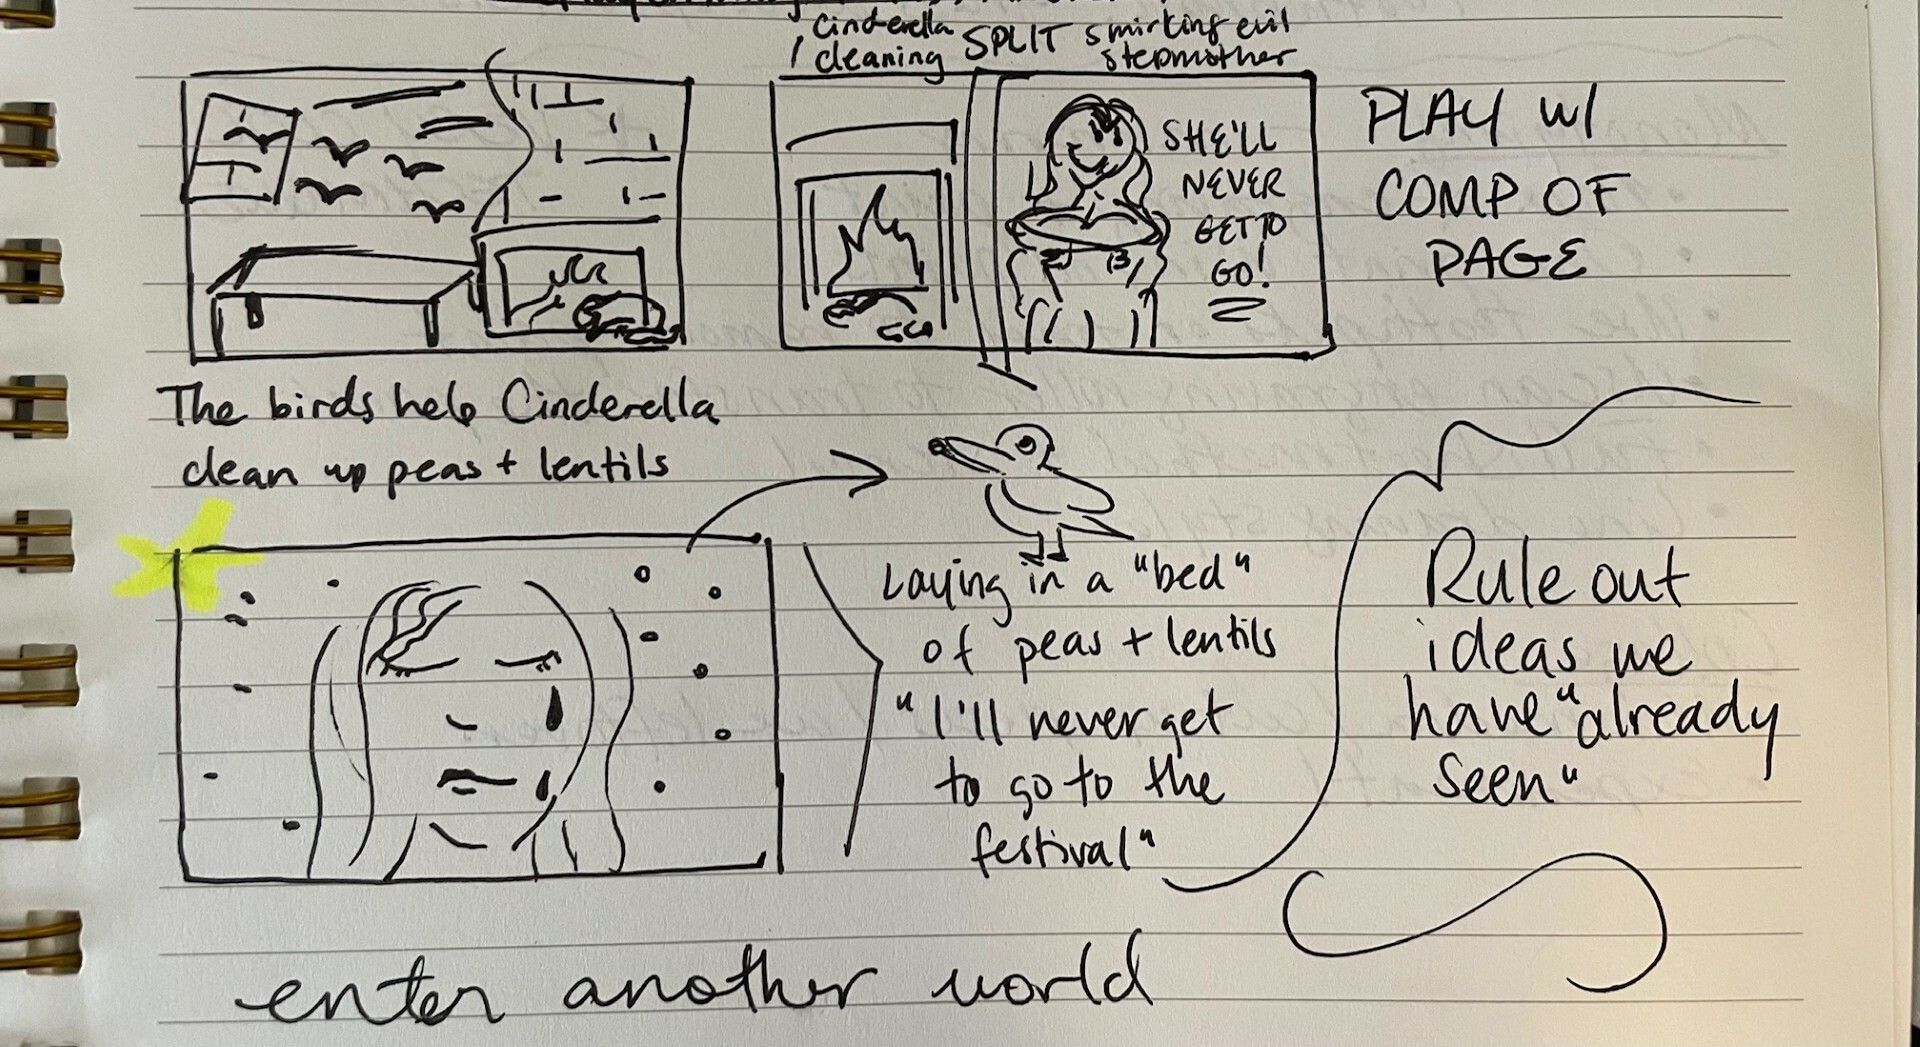 Cinderella
cleaning
SPLIT
smirking evil
stepmother
SHE'LL
NEVER
GET TO
GO!
PLAY w/
COMP OF
PAGE
The birds help Cinderella
clean up peas + lentils
Laying in a "bed"
of peas + lentils
"I'll never get
to go to the
festival"
Rule out
ideas we
have "already
seen"
enter another world